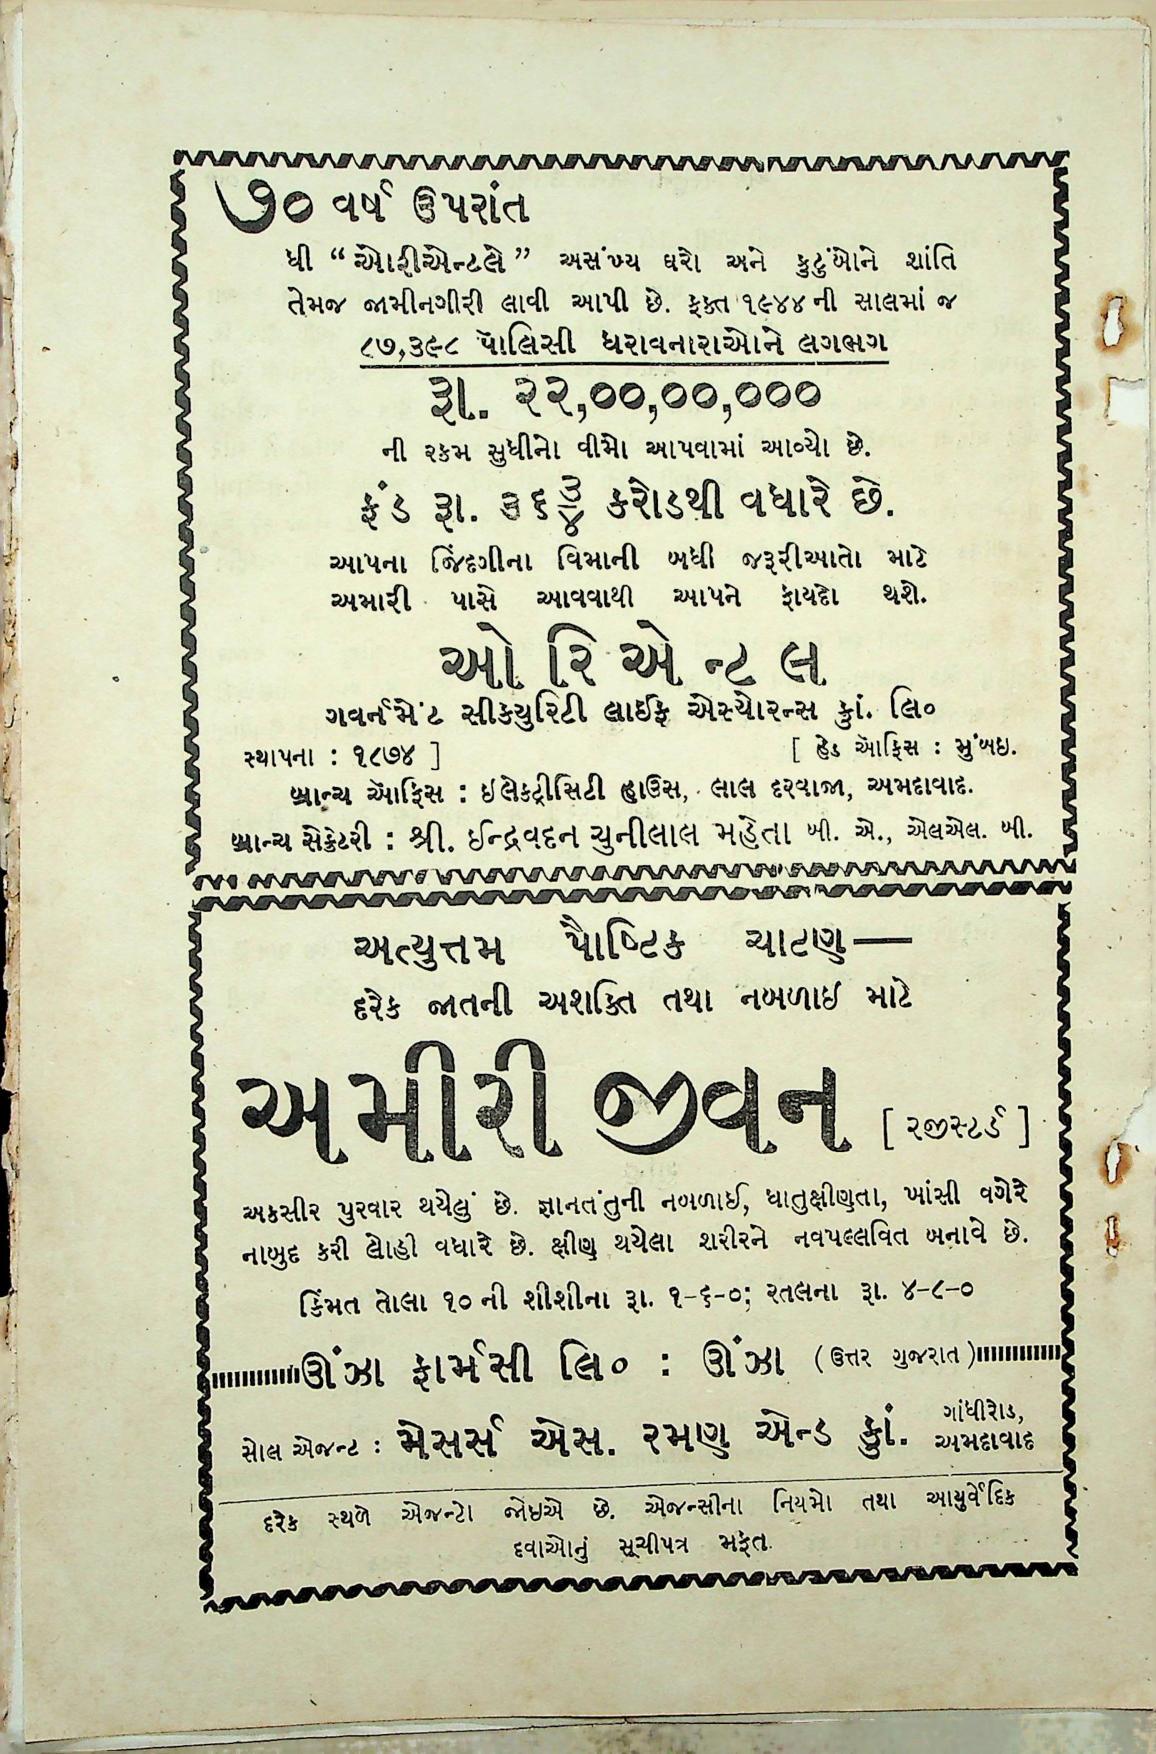 ૭૦ વર્ષ ઉપરાંત
ધી “ઓરીએન્ટલે” અસંખ્ય ઘરો અને કુટુંબોને શાંતિ
તેમજ જામીનગીરી લાવી આપી છે. ફક્ત ૧૯૪૪ ની સાલમાં જ
૮૭,૩૯૮ પૉલિસી ધરાવનારાઓને લગભગ
રૂા. ૨૨,૦૦,૦૦,૦૦૦
ની રકમ સુધીનો વીમો આપવામાં આવ્યો છે.
ફંડ રૂા. ૩૬ ૩/૪ કરોડથી વધારે છે.
આપના જિંદગીના વિમાની બધી જરૂરીઆતો માટે
અમારી પાસે આવવાથી આપને ફાયદો થશે.
ઓરિએન્ટલ
ગવર્નમેંટ સીક્યુરિટી લાઈફ એસ્યોરન્સ કુાં. લિ૦
સ્થાપના : ૧૮૭૪ ] [ હેડ ઑફિસ : મુંબઇ.
બ્રાન્ચ ઑફિસ : ઇલેકટ્રીસિટી હાઉસ, લાલ દરવાજા, અમદાવાદ.
બ્રાન્ચ સેક્રેટરી : શ્રી. ઈન્દ્રવદન ચુનીલાલ મહેતા બી. એ., એલએલ. બી.
અત્યુત્તમ પૌષ્ટિક ચાટણ—
દરેક જાતની અશક્તિ તથા નબળાઈ માટે
અમીરી જીવન [ રજીસ્ટર્ડ ]
અકસીર પુરવાર થયેલું છે. જ્ઞાનતંતુની નબળાઈ, ધાતુક્ષીણતા, ખાંસી વગેરે
નાબુદ કરી લોહી વધારે છે. ક્ષીણ થયેલા શરીરને નવપલ્લવિત બનાવે છે.
કિંમત તોલા ૧૦ ની શીશીના રૂા. ૧-૬-૦; રતલના રૂા. ૪-૮-૦
ઊંઝા ફાર્મસી લિ૦ : ઊંઝા (ઉત્તર ગુજરાત)
સોલ એજન્ટ : મેસર્સ એસ. રમણ એન્ડ કુાં. ગાંધીરોડ,
અમદાવાદ
દરેક સ્થળે એજન્ટો જોઇએ છે. એજન્સીના નિયમો તથા આયુર્વેદિક
દવાઓનું સૂચીપત્ર મફત.